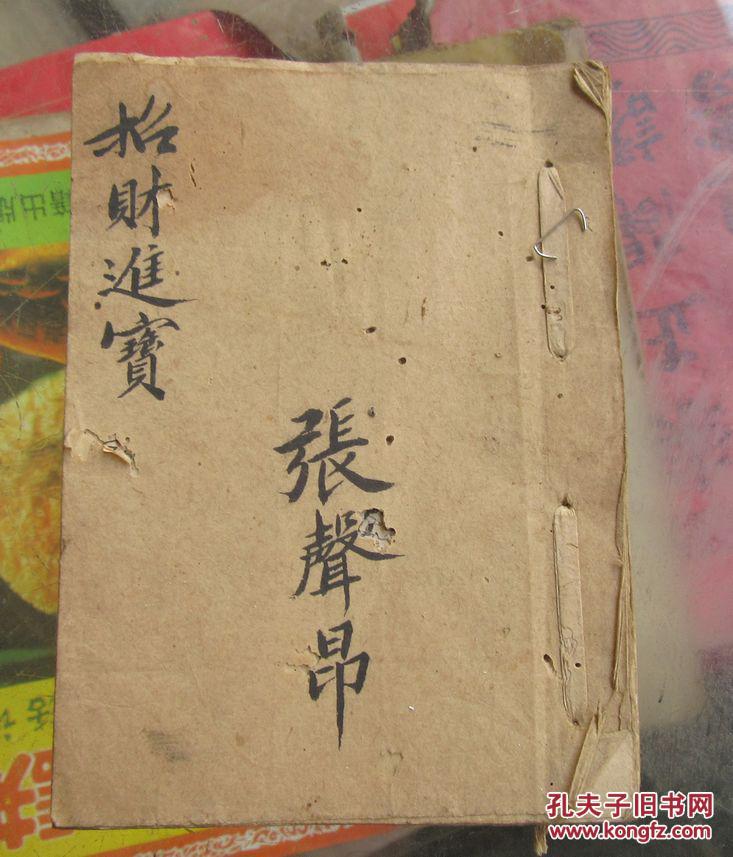 招財進寶
張聲昂
孔夫子旧书网
www.kongfz.com